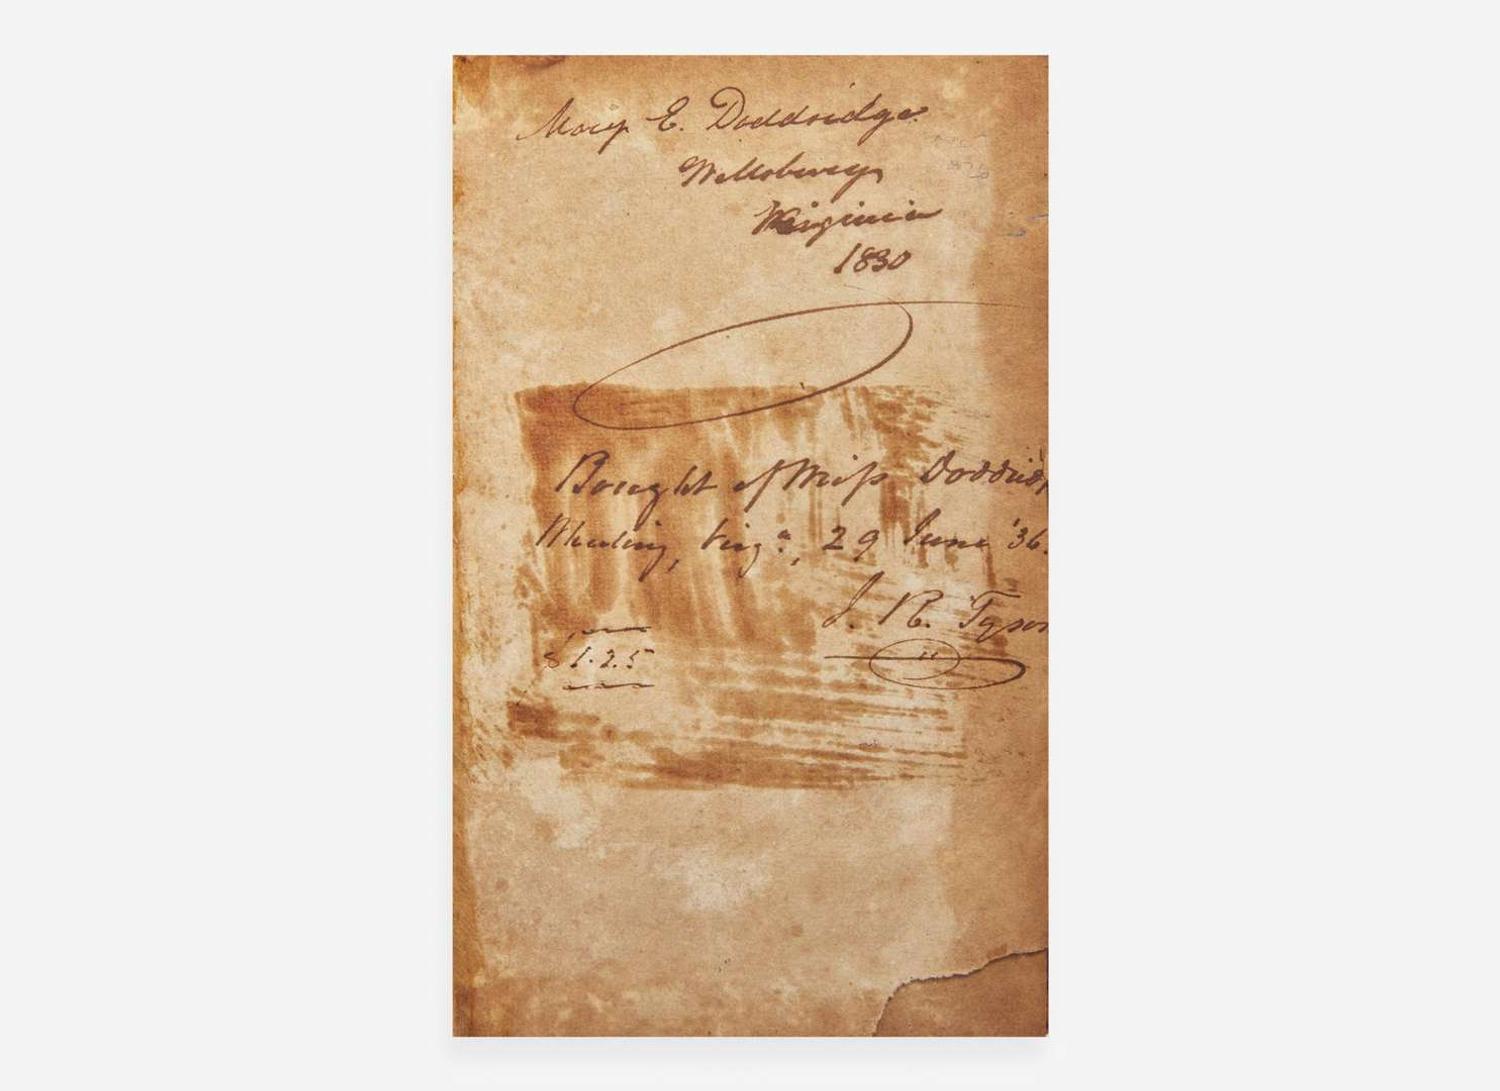 Mary E. Doddridge
Wellsburg
Virginia
1830
Bought of Miss Doddrid
Wheeling, Virgª, 29 June '36.
J. R. Tyson
$1.25